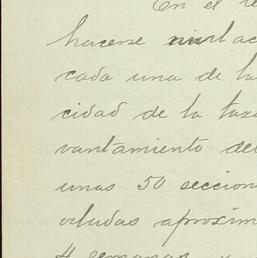 En el re
hacerse nivlac
cada una de la
cidad de la taza
vantamiento del
unas 50 seccion
viladas aproxim
4 semanas